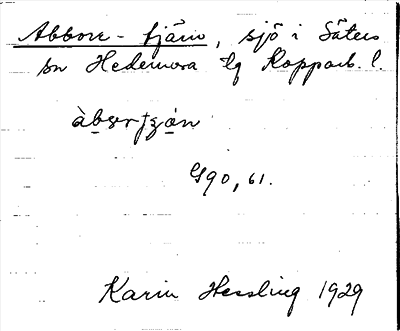 Abborr-tjärn, sjö i Säters
sn Hedemora tg Kopparb. l.
àbɐrtʃɛ̀n
G90, 61.
Karin Hessling 1929